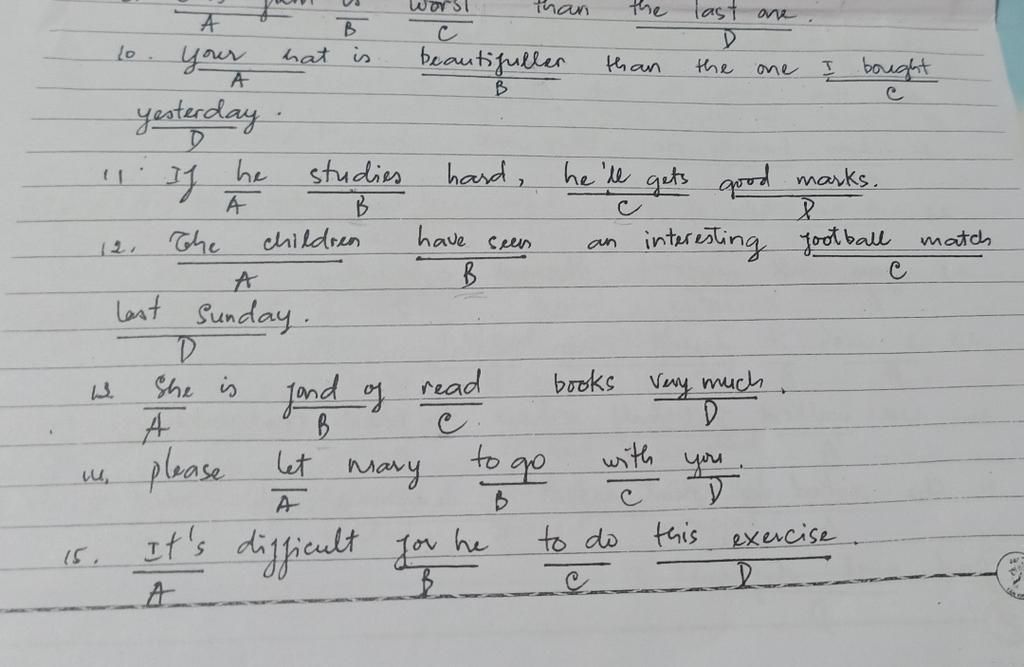 worst than the last one.
A B C D
10. Your hat is beautifuller than the one I bought
A B C
yesterday.
D
11. If he studies hard, he'll gets good marks.
A B C D
12. The children have seen an interesting football match
A B C
last Sunday.
D
13. She is fond of read books very much.
A B C D
14. please let mary to go with you.
A B C D
15. It's difficult for he to do this exercise.
A B C D